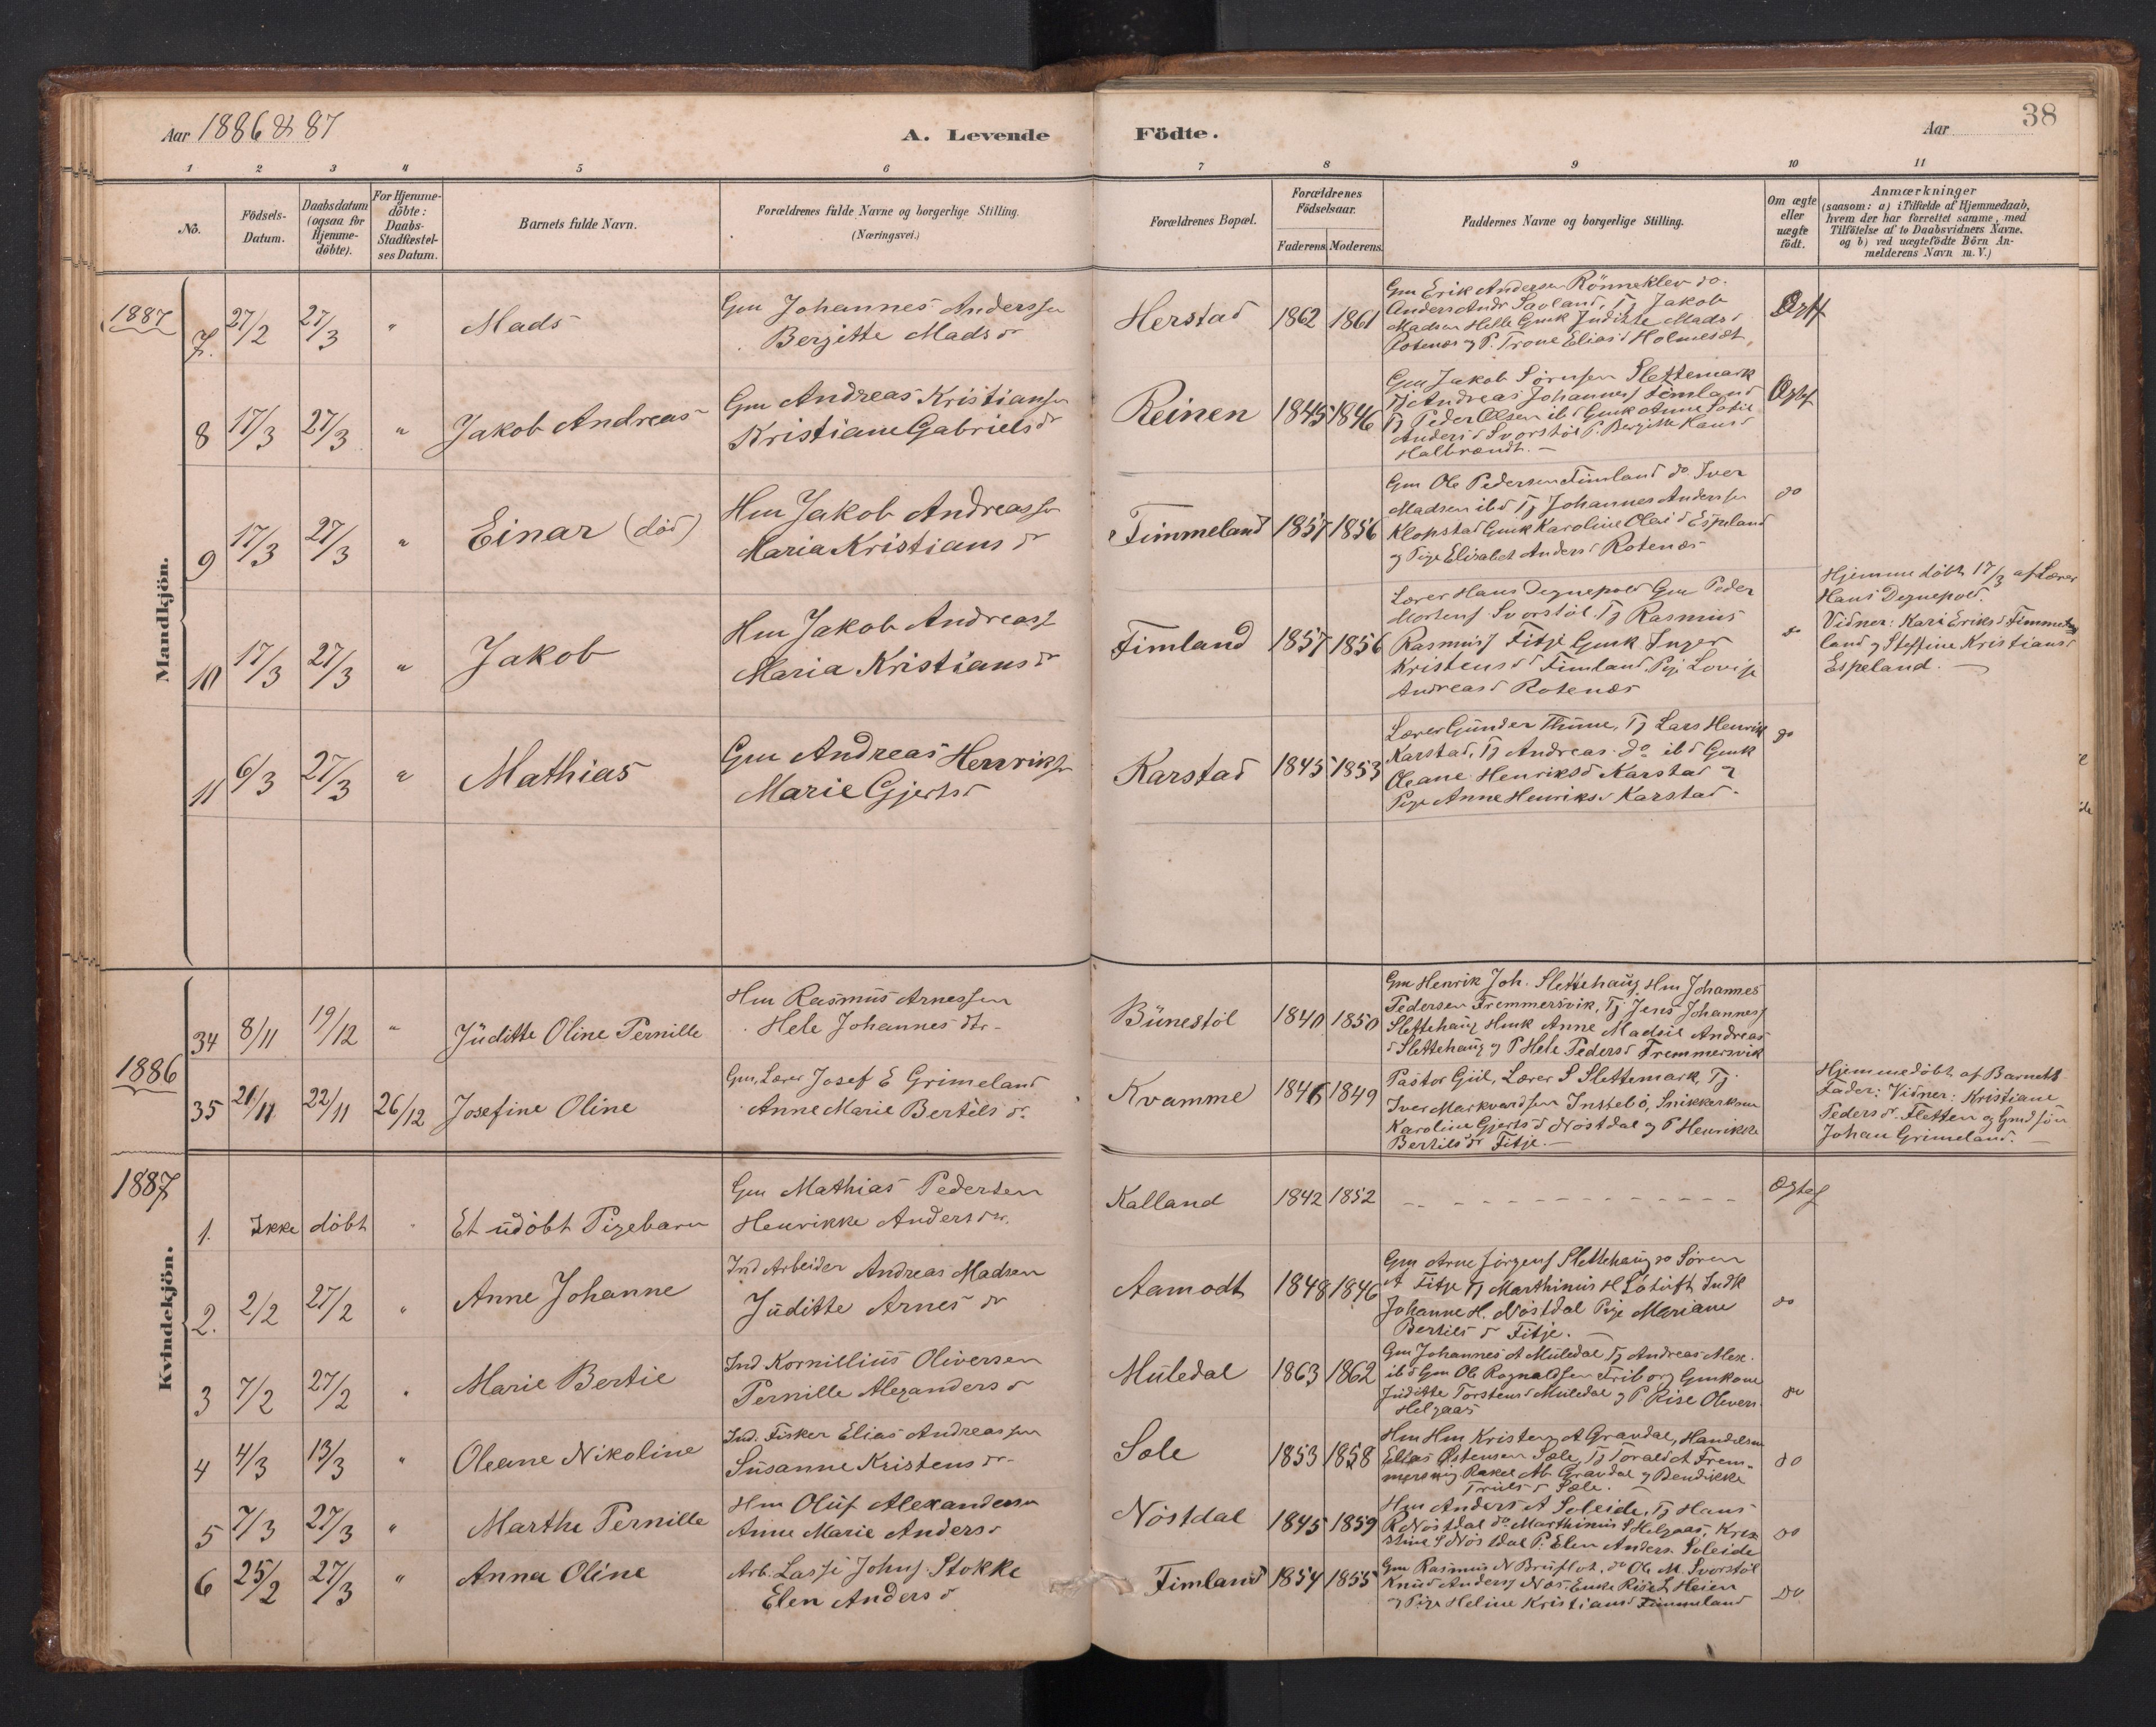 Aar 1886 & 87
A. Levende
Födte.
Aar
38
1 2 3 4 5 6 7 8 9 10 11
No.
Födsels-
Datum.
Daabsdatum
(ogsaa for
Hjemme-
döbte).
For Hjemme-
döbte:
Daabs-
Stadfæstel-
ses Datum.
Barnets fulde Navn.
Forældrenes fulde Navne og borgerlige Stilling.
(Næringsvei.)
Forældrenes Bopæl.
Forældrenes
Födselsaar.
Faderens. Moderens.
Faddernes Navne og borgerlige Stilling.
Om ægte
eller
uægte
födt.
Anmærkninger
(saasom: a) i Tilfælde af Hjemmedaab,
hvem der har forrettet samme, med
Tilföielse af to Daabsvidners Navne.
og b) ved uægtefödte Börn An-
melderens Navn m.V.)
Mandkjön.
1887
7. 27/2 27/3 " Mads
Gm Johannes Anderssen
Bergitte Madsdr
Herstad 1862 1861
Gm Erik Andersen Rönneklev do.
Anders Andr Savland, Tj Jakob
Madsen Helle Gmk Juditte Madsd
Rotenæs og P. Trone Eliasd Holmesæt,
Ægtf
8 17/3 27/3 " Jakob Andreas
Gm Andreas Kristiansen
Kristiane Gabrielsdr
Reinen 1845 1846
Gm Jakob Sörensen Slettemark
Tj Andreas Johannes Timland
Tj Peder Olsen ibd Gmk Anne Sofie
Andersd Svorstöl P. Bergitte Hansd
Halbrændt. —
Ægtf
9 17/3 27/3 " Einar (död)
Hm Jakob Andreassen
Maria Kristiansdr
Timmeland 1857 1856
Gm Ole Pedersen Timland do Iver
Madsen ibd Tj Johannes Anderssen
Klopstad Gmk Karoline Olaid Espeland
og Pige Elisabet Andersd Rotenæs
do
10 17/3 27/3 " Jakob
Hm Jakob Andreass
Maria Kristiansdr
Timland 1857 1856
Lærer Hans Degnepold Gm Peder
Mortens Svorstöl. Tj Rasmus
Rasmus Fitje Gmk Inger
Kristensd Timland Pig Lovise
Andreasd Rotenæs
do
Hjemmedöbt 17/3 af Lærer
Hans Degnepold.
Vidner: Kari Eriksd Timme
land og Steffine Kristiansd
Espeland. —
11 6/3 27/3 " Mathias
Gm Andreas Henriksen
Marie Gjertsd
Karstad 1845 1853
Lærer Günder Thüne, Tj Lars Henrik
Karstad, Tj Andreas do ibd Gmk
Oleane Henriksd Karstad og
Pige Anne Henriksd Karstad.
do
Kvindekjön.
34 8/11 19/12 " Jüditte Oline Pernille
Hm Rasmus Arnessen
Hele Johannesdtr
Bünestöl 1840 1850
Gm Henrik Joh. Slettehaug Hm Johannes
Pedersen Fremmersvik, Tj Jens Johannes
Slettehaug Hmk Anne Madsil Andreas
d Slettehaug og P Hele Pedersd Fremmersvik
1886
35 20/11 22/11 26/12 Josefine Oline
Gm, Lærer Josef E Grimeland
Anne Marie Bertelsdr.
Kvamme 1846 1849
Pastor Giil, Lærer S Slettemark, Tj.
Iver Markvardsen Instebö, Snikkerkone
Karoline Gjertsd Nöstdal og P Henrikke
Bertilsdr Fitje. —
Hjemmedöbt af Barnets
Fader: Vidner: Kristiane
Pedersdr. Fletten og Gmdsön
Johan Grimeland. —
1887
1. Ikke döbt " Et udöbt Pigebarn
Gm Mathias Pedersen
Henrikke Andersdr.
Kalland 1842 1852
Ægtef
2. 2/2 27/2 " Anne Johanne
Ind Arbeider Andreas Madsen
Jüditte Arnesdr
Aamodt 1848 1846
Gm Arne Jörgens Slettehaug do Sören
A Fitje Tj Marthinus H Lötuft Indk
Johanne H. Nöstdal Pige Mariane
Bertilsdr Fitje. —
do
3 7/2 27/2 " Marie Bertie
Ind Kornillius Oliversen
Pernille Alexandersd
Muledal 1863 1862
Gm Johannes A Müledal Tj Andreas Alex.
ibd Gm Ole Ragnaldsen Friborg Gmkone
Juditte Torstensd Müledal og P Rise Olevers
Helgaas
do
4 4/3 13/3 " Oleane Nikoline
Ind. Fisker Elias Andreassen
Susanne Kristensdr
Sæle 1853 1858
Hm Hm Kristen A Gravdal, Handelsm
Elias Östensen Sæle, Tj Torald A Frem-
mersvig Rakel Ab Gravdal og Bendikke
Trulsd Sæle.
do
5 7/3 27/3 " Marthe Pernille
Hm Oluf Alexandersen
Anne Marie Andersd
Nöstdal 1845 1859
Hm Anders A Soleide, Tj Hans
R Nöstdal do Marthinius S Helgaas, Kris
stine S Nöstdal P. Elen Anders. Soleide
do
6 25/2 27/3 " Anna Oline
Arb. Lasse Johns Stokke
Elen Andersd
Timland 1854 1855
Gm Rasmus N Bruflot, do Ole M. Svorstöl
Knud Anders Næs. Enke Rise L Heien
og Pige Heline Kristiansd Timmeland
do